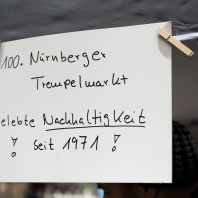 100. Nürnberger
Trempelmarkt
elebte Nachhaltigkeit
! seit 1971 !